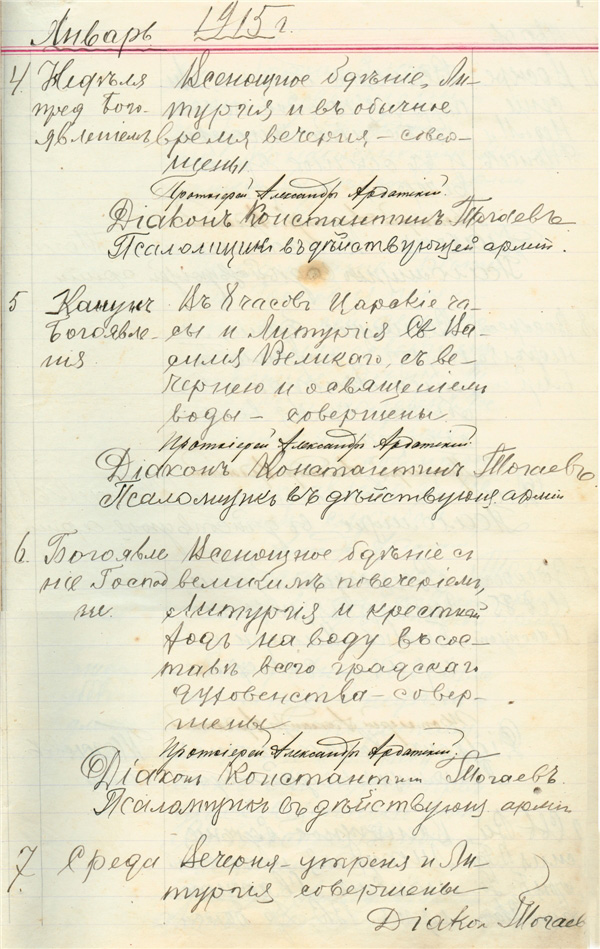 Январь 1915 г.
4. Недѣля Всенощное бдѣніе, Ли-
пред Бого- тургія и въ обычное
явленіемъ время вечерня – совер-
шены
Протоіерей Александръ Ардатскій.
Діаконъ Константинъ Тогаевъ.
Псаломщикъ въ дѣйствующей арміи.
5 Канунъ Въ 8 часовъ Царскіе ча-
Богоявле- сы и Литургія Св Ва-
нія силія Великаго, съ ве-
чернею и освященіемъ
воды – совершены
Протоіерей Александръ Ардатскій.
Діаконъ Константинъ Тогаевъ.
Псаломщикъ въ дѣйствующ. арміи
6. Богоявле Всенощное бдѣніе съ
ніе Господ великимъ повечеріемъ,
не. Литургія и крестный
ходъ на воду въ сос-
тавѣ всего градскаго
духовенства – совер-
шены
Протоіерей Александръ Ардатскій.
Діаконъ Константинъ Тогаевъ.
Псаломщикъ въ дѣйствующ. арміи
7. Среда Вечерня – утреня и Ли-
тургія совершены
Діакон Тогаев